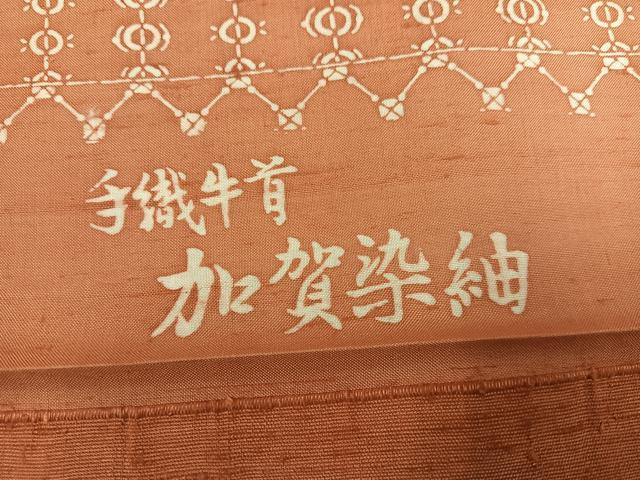 手織牛首
加賀染紬